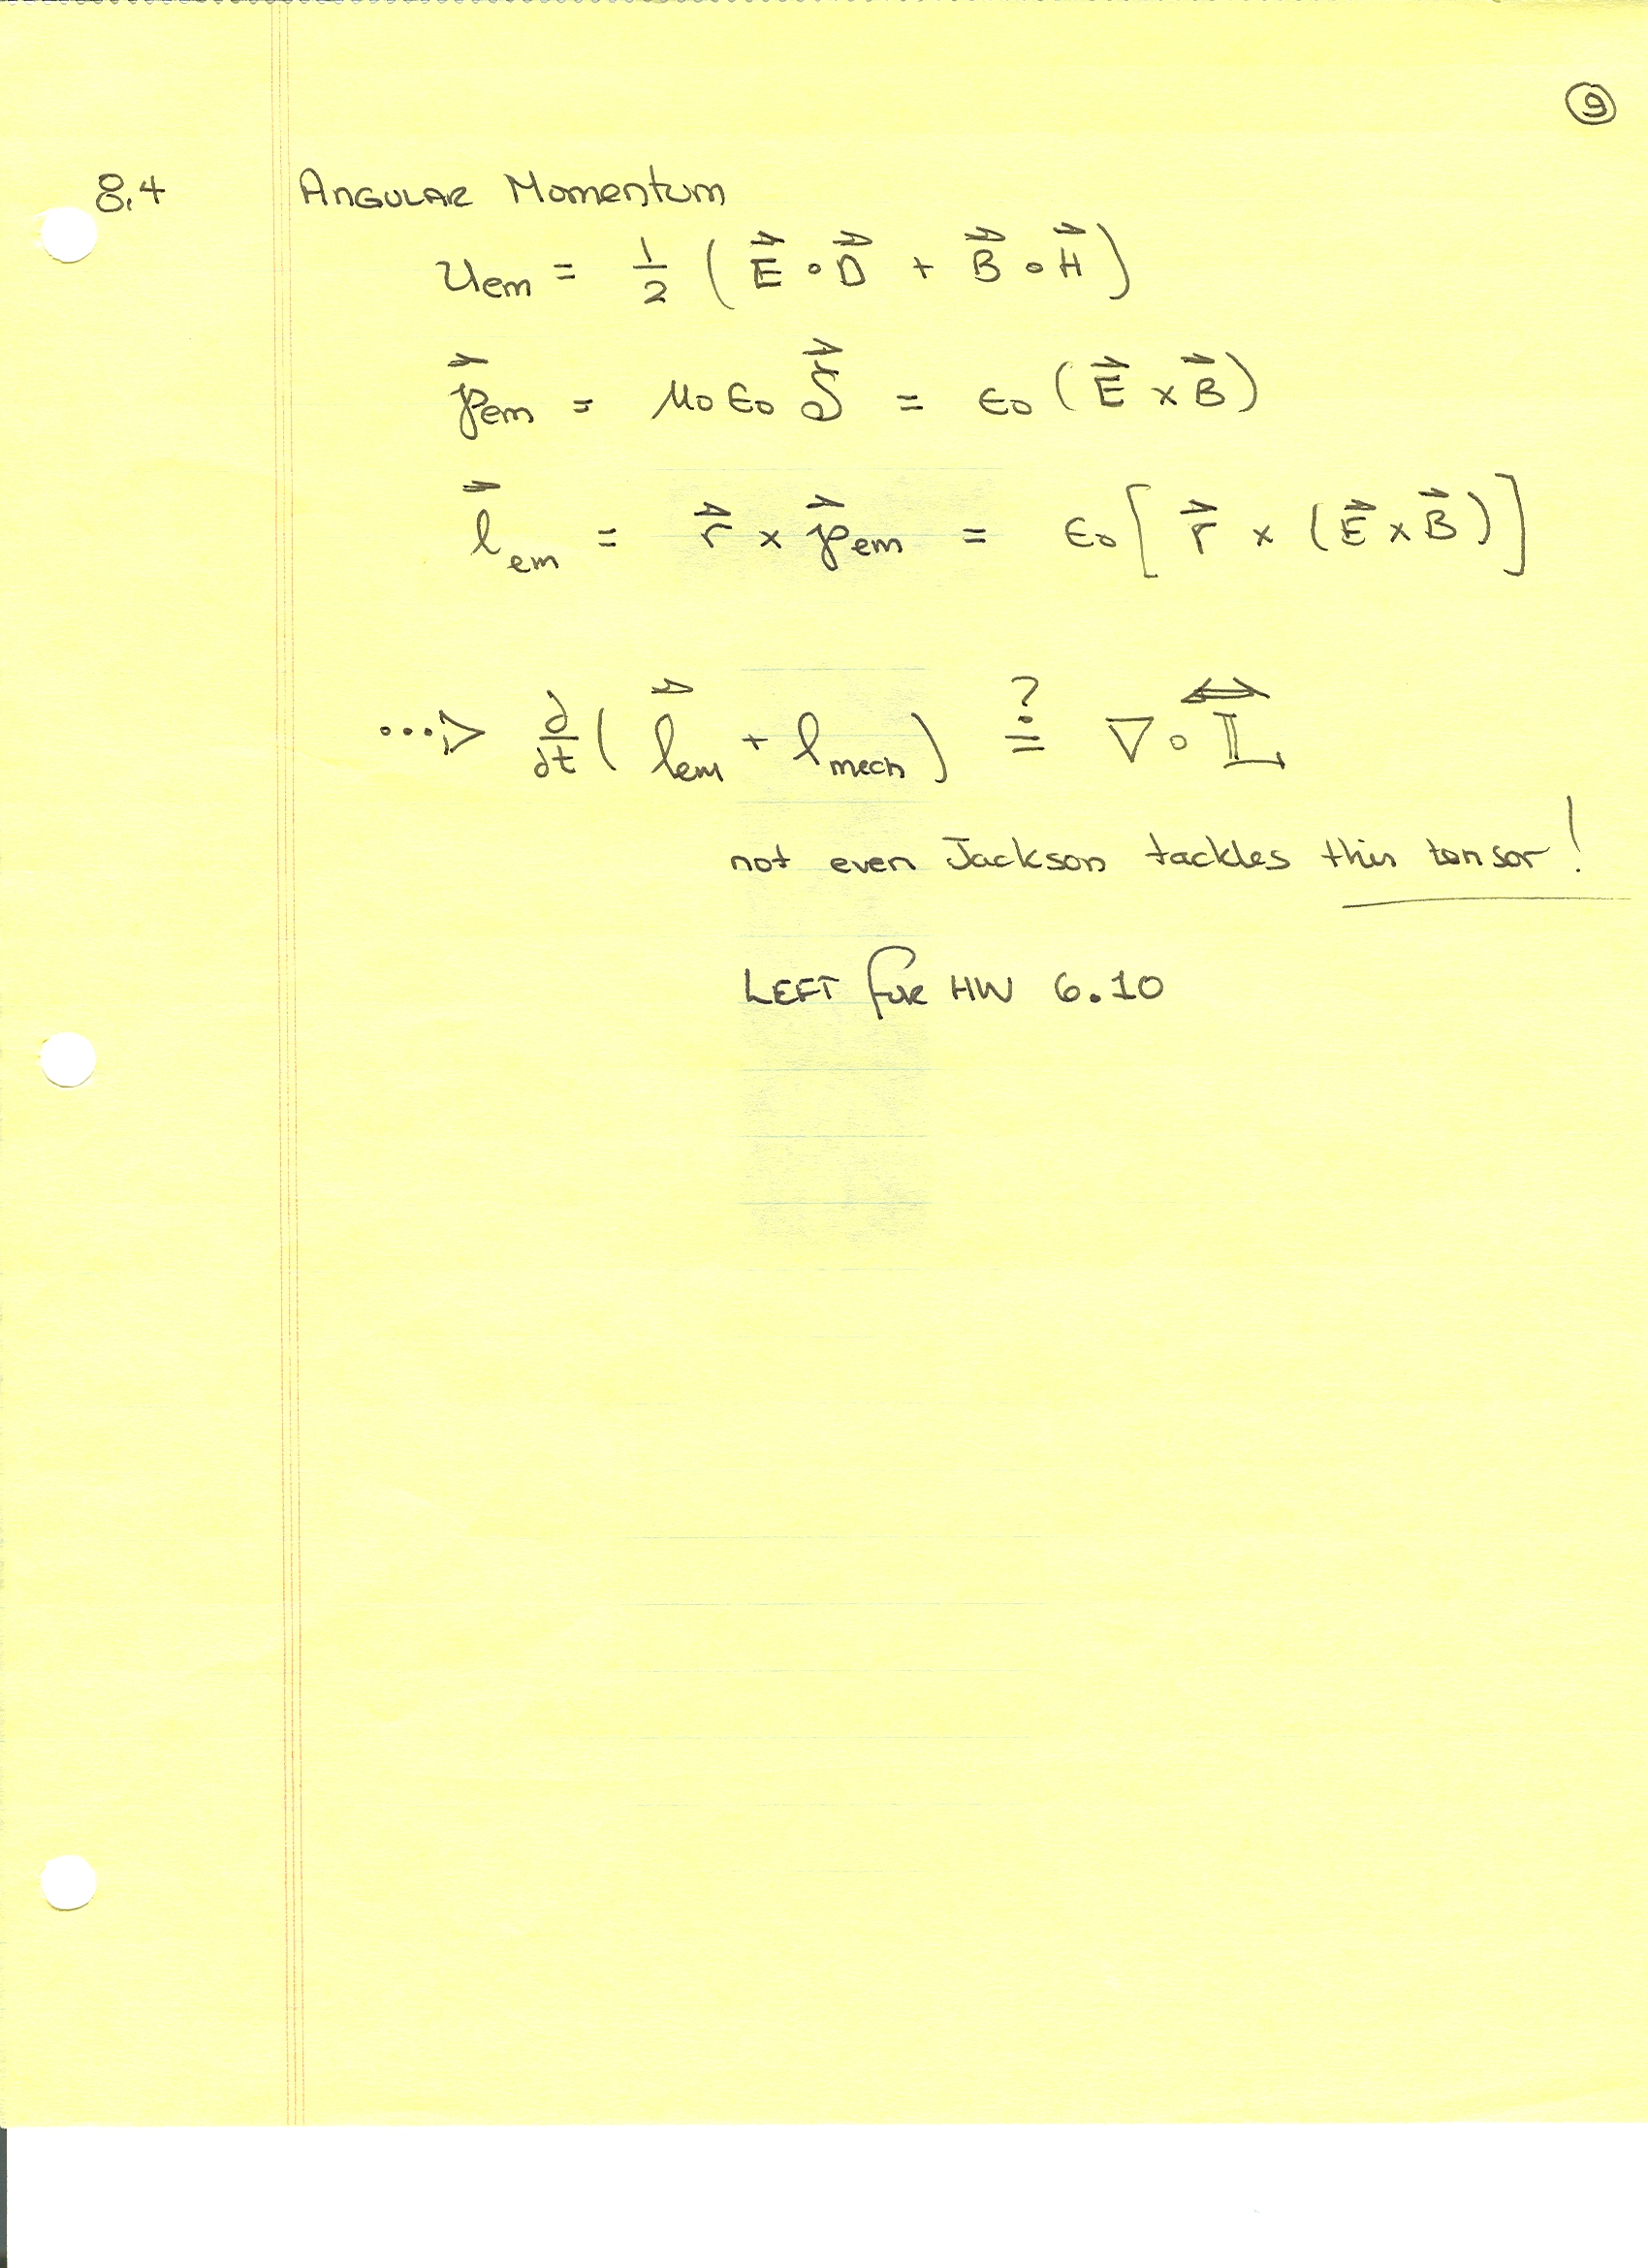 9
8.4 Angular Momentum
u_em = 1/2 ( E⃗ ∘ D⃗ + B⃗ ∘ H⃗ )
℘⃗_em = μ₀ ε₀ S⃗ = ε₀ ( E⃗ × B⃗ )
ℓ⃗_em = r⃗ × ℘⃗_em = ε₀ [ r⃗ × ( E⃗ × B⃗ ) ]
···▷ ∂/∂t ( ℓ⃗_em + ℓ_mech ) ≟ ∇ ∘ 𝕃⃡
not even Jackson tackles this tensor!
LEFT for HW 6.10